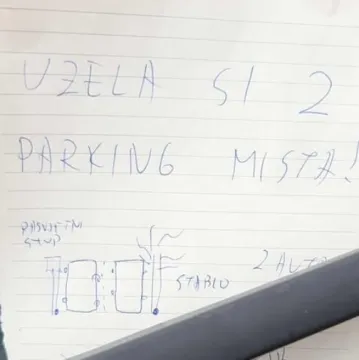 UZELA SI 2
PARKING MISTA!
RASVJETNI
STUP
STABLO
2 AUTA